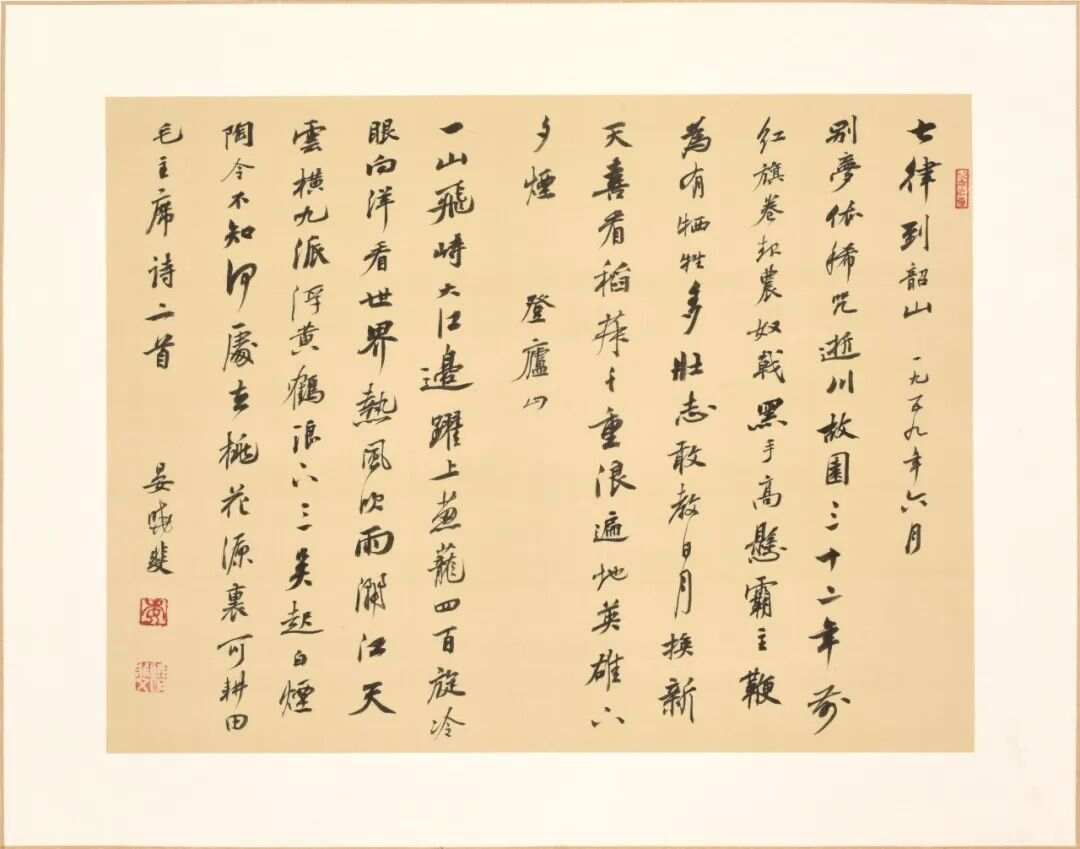 七律到韶山 一九五九年六月
别夢依稀咒逝川故園三十二年前
红旗卷起農奴戟黑手高懸霸主鞭
為有牺牲多壮志敢教日月换新
天喜看稻菽千重浪遍地英雄下
夕煙 登廬山
一山飛峙大江邊躍上葱蘢四百旋冷
眼向洋看世界熱風吹雨灑江天
雲横九派浮黄鶴浪下三吴起白煙
陶令不知何處去桃花源裏可耕田
毛主席诗二首 晏斐